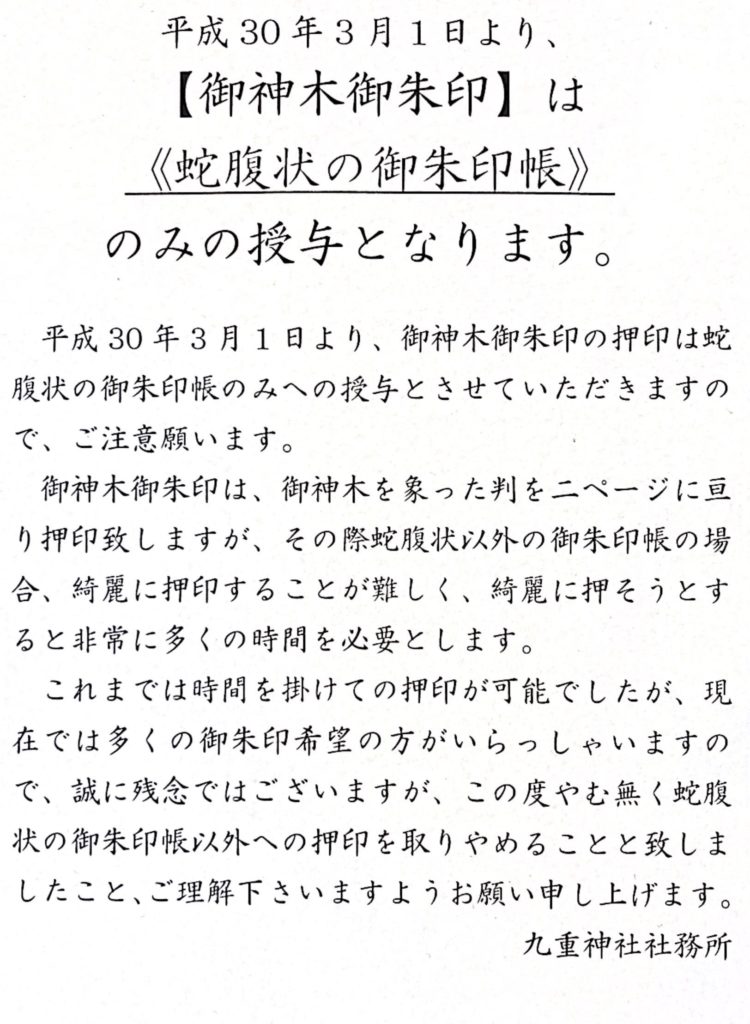 平成30年3月1日より、
【御神木御朱印】は
《蛇腹状の御朱印帳》
のみの授与となります。
平成30年3月1日より、御神木御朱印の押印は蛇
腹状の御朱印帳のみへの授与とさせていただきますの
で、ご注意願います。
御神木御朱印は、御神木を象った判を二ページに亘
り押印致しますが、その際蛇腹状以外の御朱印帳の場
合、綺麗に押印することが難しく、綺麗に押そうとす
ると非常に多くの時間を必要とします。
これまでは時間を掛けての押印が可能でしたが、現
在では多くの御朱印希望の方がいらっしゃいますの
で、誠に残念ではございますが、この度やむ無く蛇腹
状の御朱印帳以外への押印を取りやめることと致しま
したこと、ご理解下さいますようお願い申し上げます。
九重神社社務所